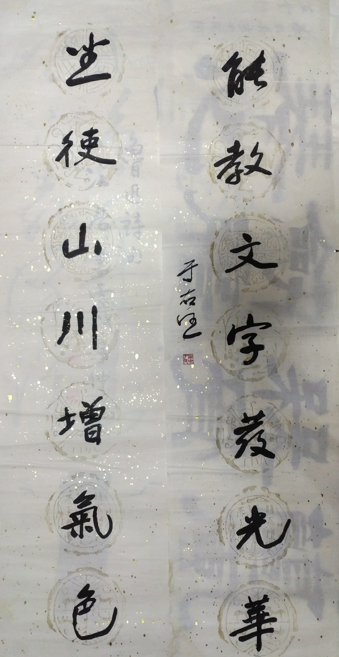 能教文字发光華
坐使山川增氣色
于右任